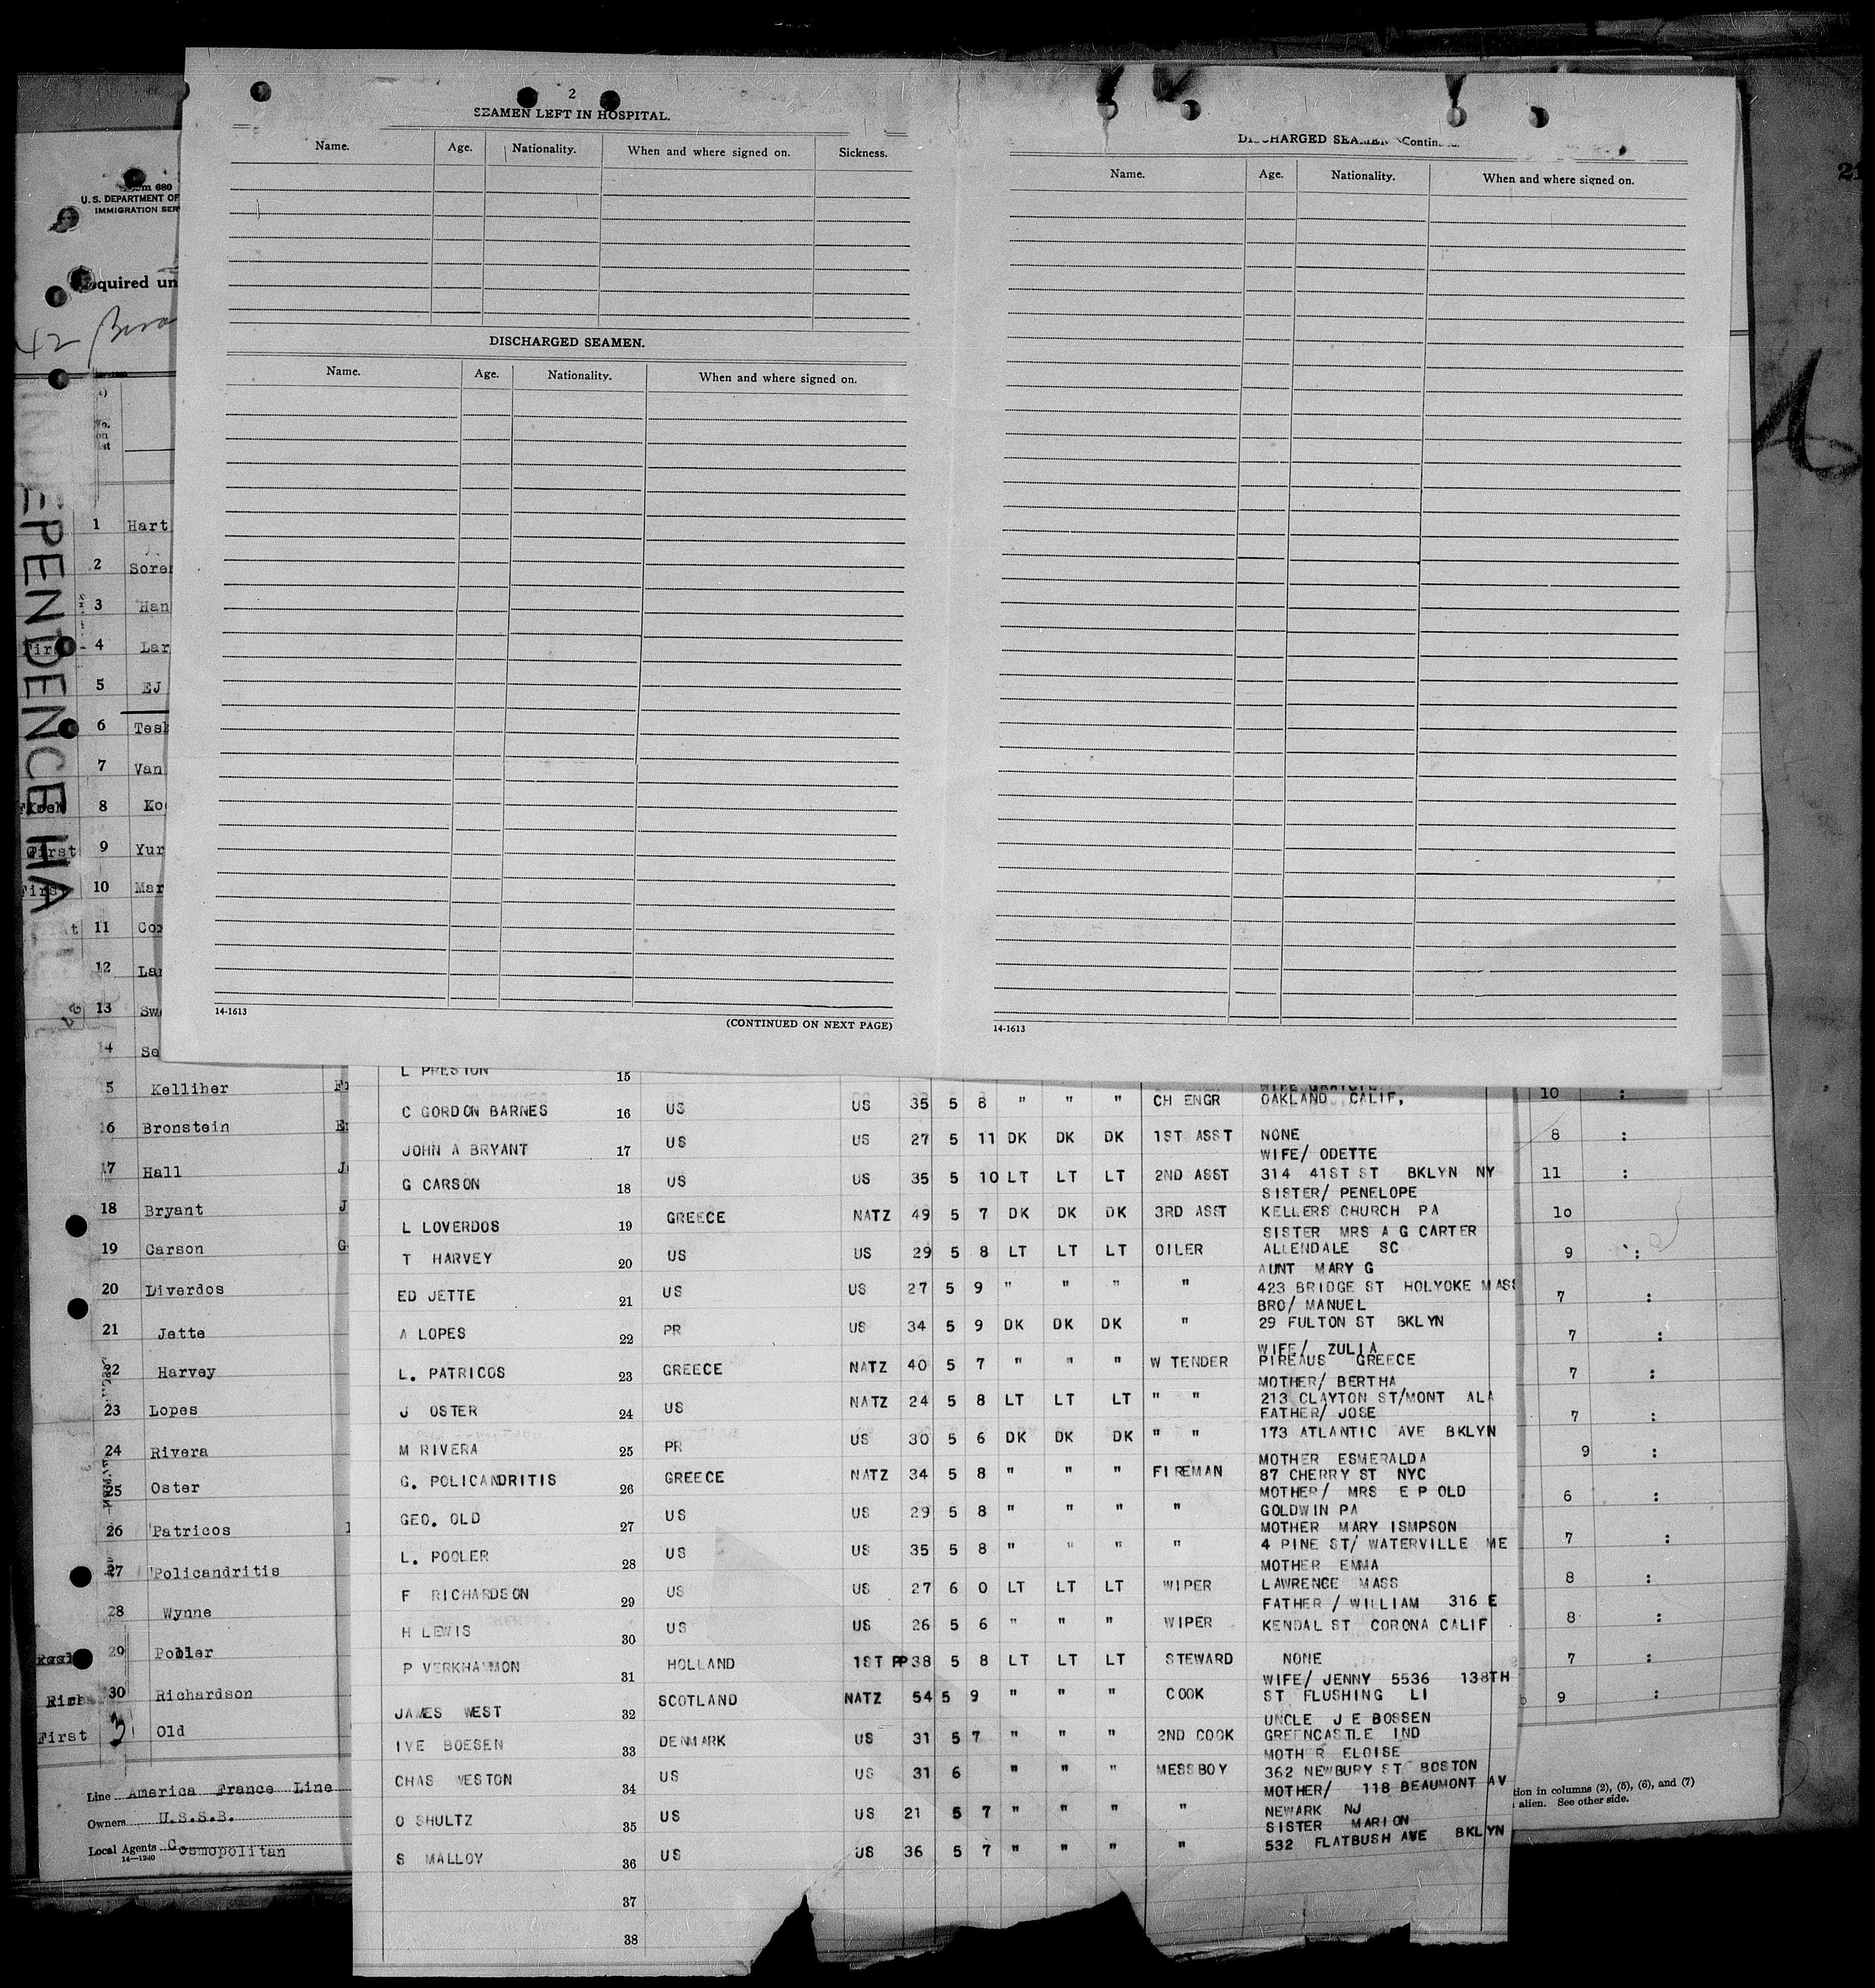 2
SEAMEN LEFT IN HOSPITAL.
Name. Age. Nationality. When and where signed on. Sickness.
DISCHARGED SEAMEN.
Name. Age. Nationality. When and where signed on.
14-1613
(CONTINUED ON NEXT PAGE)
DISCHARGED SEAMEN
Name. Age. Nationality. When and where signed on.
14-1613
680
U. S. DEPARTMENT OF
IMMIGRATION SER
quired un
42
EPENDENCE HA
1 Hart
2 Sore
3 Han
4 Lar
5 EJ
6 Tesk
7 Van
8 Ko
9 Yur
10 Mar
11 Cox
12 Lar
13 Sw
14 Se
5 Kelliher
16 Bronstein
17 Hall
18 Bryant J
19 Carson G
20 Liverdos
21 Jette
22 Harvey
23 Lopes
24 Rivera
25 Oster
26 Patricos
27 Policandritis
28 Wynne
29 Pooler
30 Richardson
First 3 Old
Line America France Line
Owners U.S.S.B.
Local Agents Cosmopolitan
14—1240
L PRESTON 15
C GORDON BARNES 16 US US 35 5 8 " " " CH ENGR OAKLAND CALIF,
JOHN A BRYANT 17 US US 27 5 11 DK DK DK 1ST ASST NONE
WIFE/ ODETTE
G CARSON 18 US US 35 5 10 LT LT LT 2ND ASST 314 41ST ST BKLYN NY
SISTER/ PENELOPE
L LOVERDOS 19 GREECE NATZ 49 5 7 DK DK DK 3RD ASST KELLERS CHURCH PA
SISTER MRS A G CARTER
T HARVEY 20 US US 29 5 8 LT LT LT OILER ALLENDALE SC
AUNT MARY G
ED JETTE 21 US US 27 5 9 " " " " 423 BRIDGE ST HOLYOKE MASS
BRO/ MANUEL
A LOPES 22 PR US 34 5 9 DK DK DK " 29 FULTON ST BKLYN
WIFE/ ZULIA
L. PATRICOS 23 GREECE NATZ 40 5 7 " " " W TENDER PIREAUS GREECE
MOTHER/ BERTHA
J OSTER 24 US NATZ 24 5 8 LT LT LT " " 213 CLAYTON ST/MONT ALA
FATHER/ JOSE
M RIVERA 25 PR US 30 5 6 DK DK DK " " 173 ATLANTIC AVE BKLYN
MOTHER ESMERALDA
G. POLICANDRITIS 26 GREECE NATZ 34 5 8 " " " FIREMAN 87 CHERRY ST NYC
MOTHER/ MRS E P OLD
GEO. OLD 27 US US 29 5 8 " " " " GOLDWIN PA
MOTHER MARY ISMPSON
L. POOLER 28 US US 35 5 8 " " " " 4 PINE ST/ WATERVILLE ME
MOTHER EMMA
F RICHARDSON 29 US US 27 6 0 LT LT LT WIPER LAWRENCE MASS
FATHER / WILLIAM 316 E
H LEWIS 30 US US 26 5 6 " " " WIPER KENDAL ST CORONA CALIF
P VERKHAMMON 31 HOLLAND 1ST PP 38 5 8 LT LT LT STEWARD NONE
WIFE/ JENNY 5536 138TH
JAMES WEST 32 SCOTLAND NATZ 54 5 9 " " " COOK ST FLUSHING LI
UNCLE J E BOSSEN
IVE BOESEN 33 DENMARK US 31 5 7 " " " 2ND COOK GREENCASTLE IND
MOTHER ELOISE
CHAS WESTON 34 US US 31 6 " " " MESSBOY 362 NEWBURY ST BOSTON
MOTHER/ 118 BEAUMONT AV
O SHULTZ 35 US US 21 5 7 " " " " NEWARK NJ
SISTER MARION
S MALLOY 36 US US 36 5 7 " " " " 532 FLATBUSH AVE BKLYN
37
38
10 :
8 :
11 :
10
9 :
7 :
7 :
7 :
7 :
9 :
6 :
7 :
8 :
8 :
7 :
9 :
tion in columns (2), (5), (6), and (7)
alien. See other side.